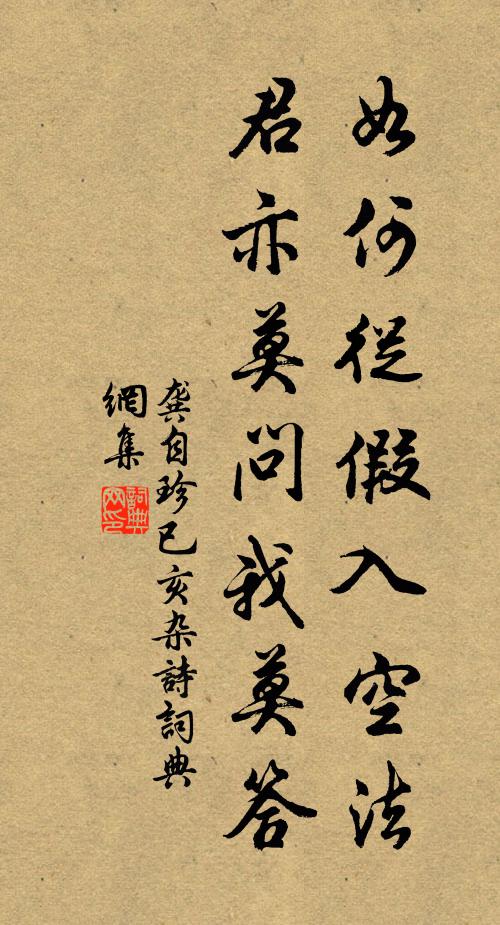 如何從假入空法
君亦莫問我莫答
龔自珍己亥杂詩詞典
網集
詞典
网印